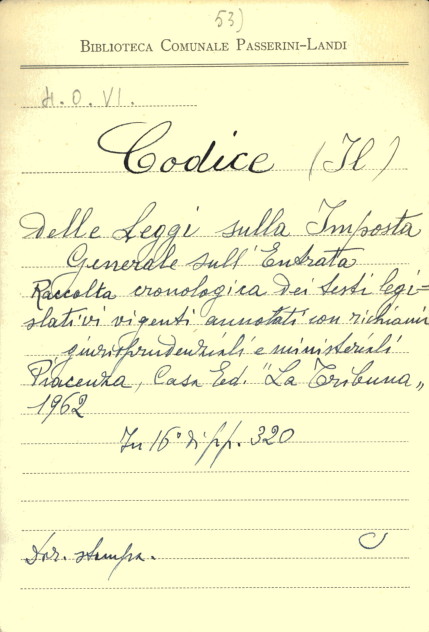 53)
BIBLIOTECA COMUNALE PASSERINI-LANDI
H. O. VI.
Codice (Il)
delle Leggi sulla Imposta
Generale sull'Entrata
Raccolta cronologica dei testi legi=
slativi vigenti annotati con richiami
giurisprudenziali e ministeriali
Piacenza, Casa Ed. "La Tribuna„
1962
In 16° di pp. 320
Dir. stampa.
C